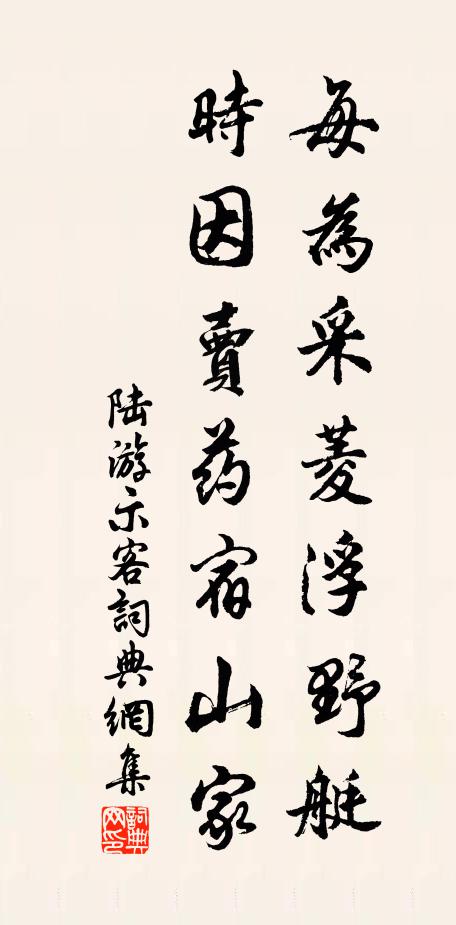 每為采菱浮野艇
時因賣药宿山家
陆游示客詞典網集
詞典网印